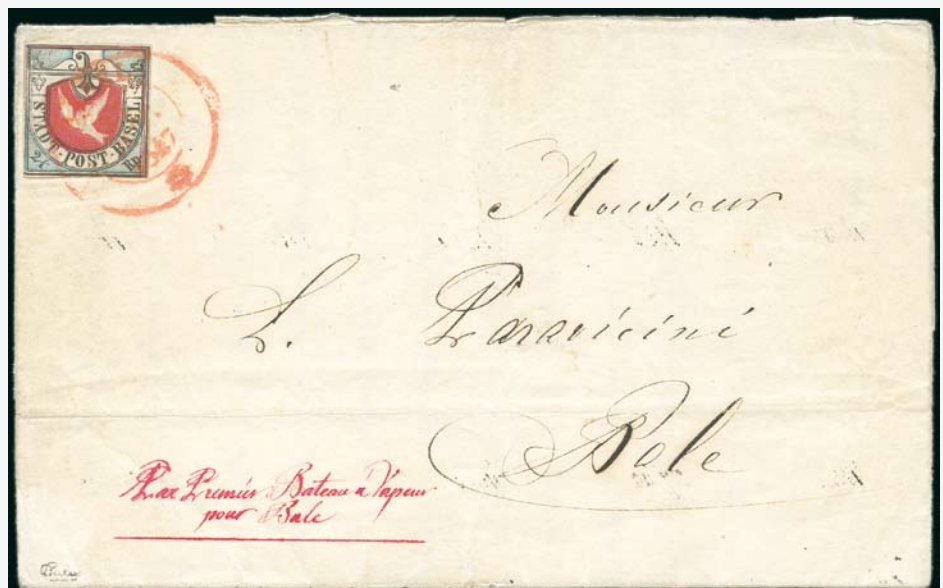 STADT-POST-BASEL
2½ Rp.
Monsieur
L. Paravicini
Bale
Par Premier Bateau à Vapeur
pour Bale